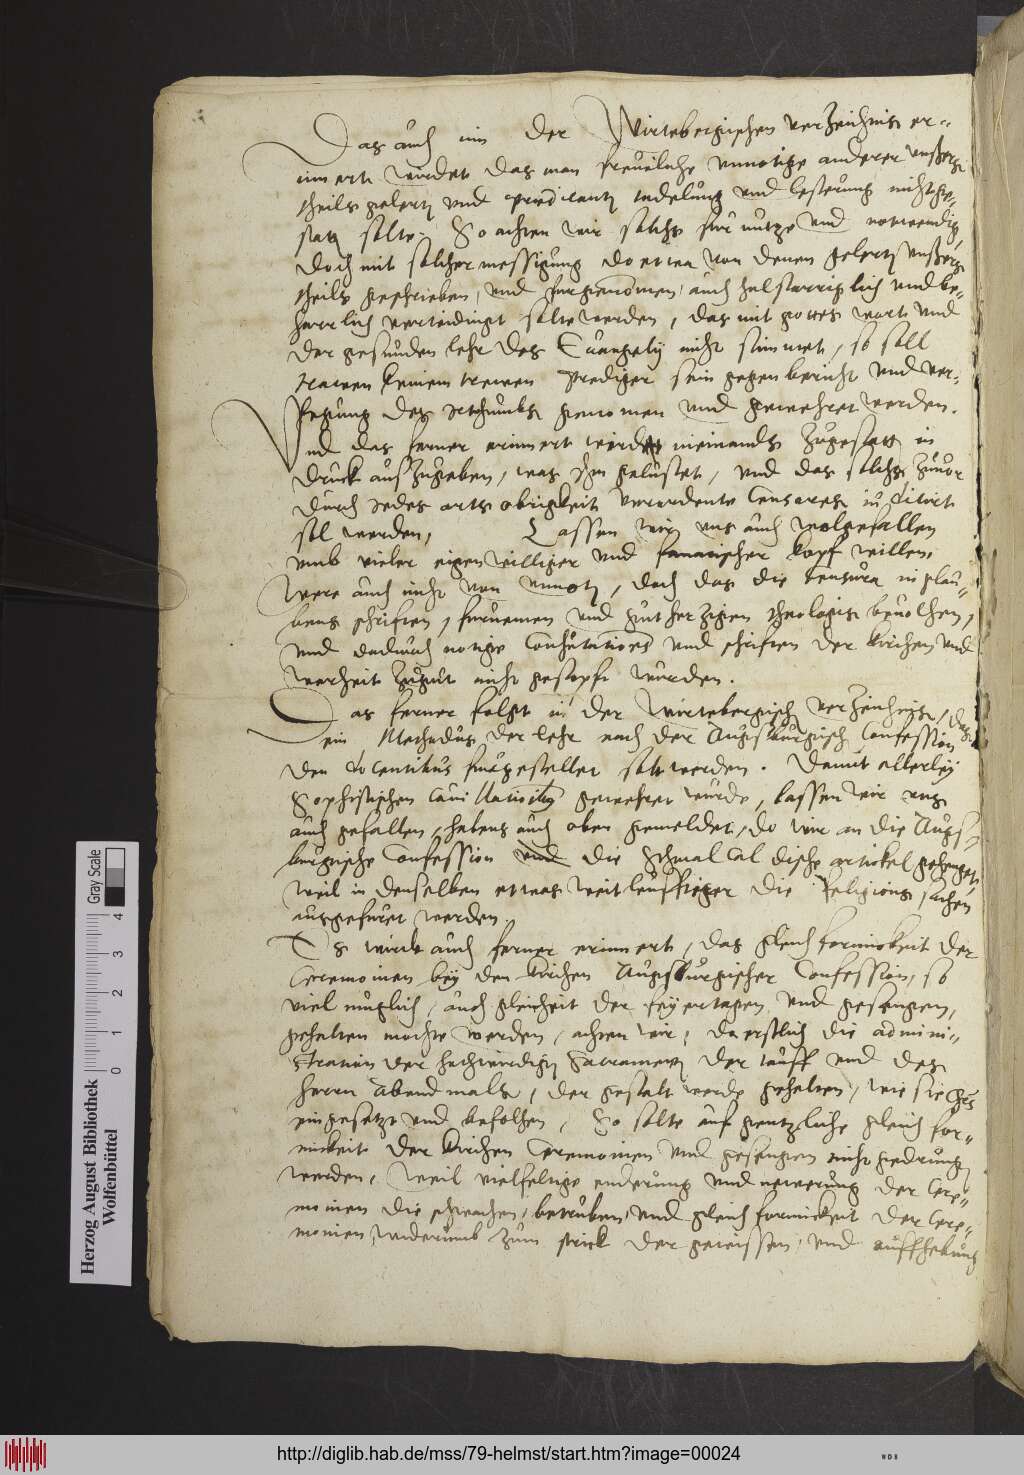 Das auch inn der Wirtebergischen verzeichnis er-
innert wirdet das man freuenliche vnnotige anderer vnsers
theils gelerten vnd predicanten tadelung vnd lesterung nicht ge-
staten solte. So achten wir solchs fur nutze vnd notwendig
doch mit solcher messigung do etwa von denen gelerten vnsers
theils geschrieben, vnd furgenomen, auch halstarriglich vnd be-
harrlich verteidingt solte werden, das mit gottes wort vnd
der gesunden lehr des Euangelij nicht stimmet, so soll
trawen keinem trewen Prediger sein gegenbericht vnd ver-
legung des irthumbs genomen vnd gewehret werden.
Vnd das ferner erinnert wirdet niemands zugestaten in
druck auszugeben, was ihn gelustet, vnd das solchs zuuor
durch iedes orts obrigkeit verordente Censores
sol werden, Lassen wir vns auch wolgefallen
vmb vieler eigenwilliger vnd fanatischer kopf willen,
Were auch nicht von vnnoten, doch das die censura in glau-
bens schriften, furnemen vnd gutherzigen theologis beuolhen,
vnd dadurch notige Confutationes vnd schriften der kirchen vnd
warheit zugut nicht gestopft wurden.
Das ferner folget in der Wirtebergisch verzeichnis, das
ein Methodus der lehr nach der Augsburgisch Confession
den docentibus furgestellet solt werden. Damit allerley
Sophistischen cauillationibus gewehret wurde, lassen wir vns
auch gefallen, habens auch oben gemeldet, do wir an die Augs-
burgische Confession die Schmalcaldische artickel gehenget
weil in denselben etwas weitleufftiger die Religions sachen
ausgefuret werden.
Es wirdt auch ferner erinnert, das gleichformickeit der
Ceremonien bey den kirchen Augsburgischer Confession, so
viel muglich, auch gleicheit der feyertagen vnd gesengen,
gehalten mochte werden, achten wir, da erstlich die admini-
stration der hochwirdigen Sacramenten der tauff vnd des
herrn abendmals, der gestalt werde gehalten, wie sie Chrs
eingesetzt vnd befolhen, So solte auf gentzliche gleich for-
mickeit der kirchen Ceremonien vnd gesengen nicht gedrungen
werden, Weil vielfeltige enderung vnd newerung der Cere-
monien die schwachen, betruben, vnd gleich formickeit der Cere-
monien, widerumb zum strick der gewissen, vnd auffhebung
Herzog August Bibliothek
Wolfenbüttel
0 1 2 3 4
Gray Scale
http://diglib.hab.de/mss/79-helmst/start.htm?image=00024